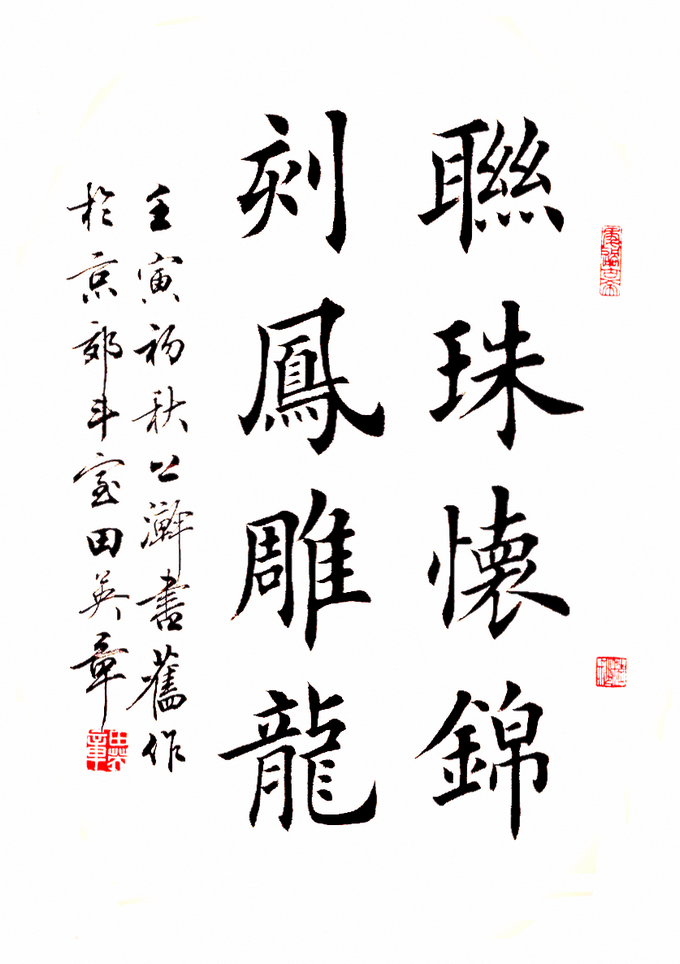 聯珠懷錦
刻鳳雕龍
壬寅初秋公瀚書舊作
於京郊斗室田英章
田英章